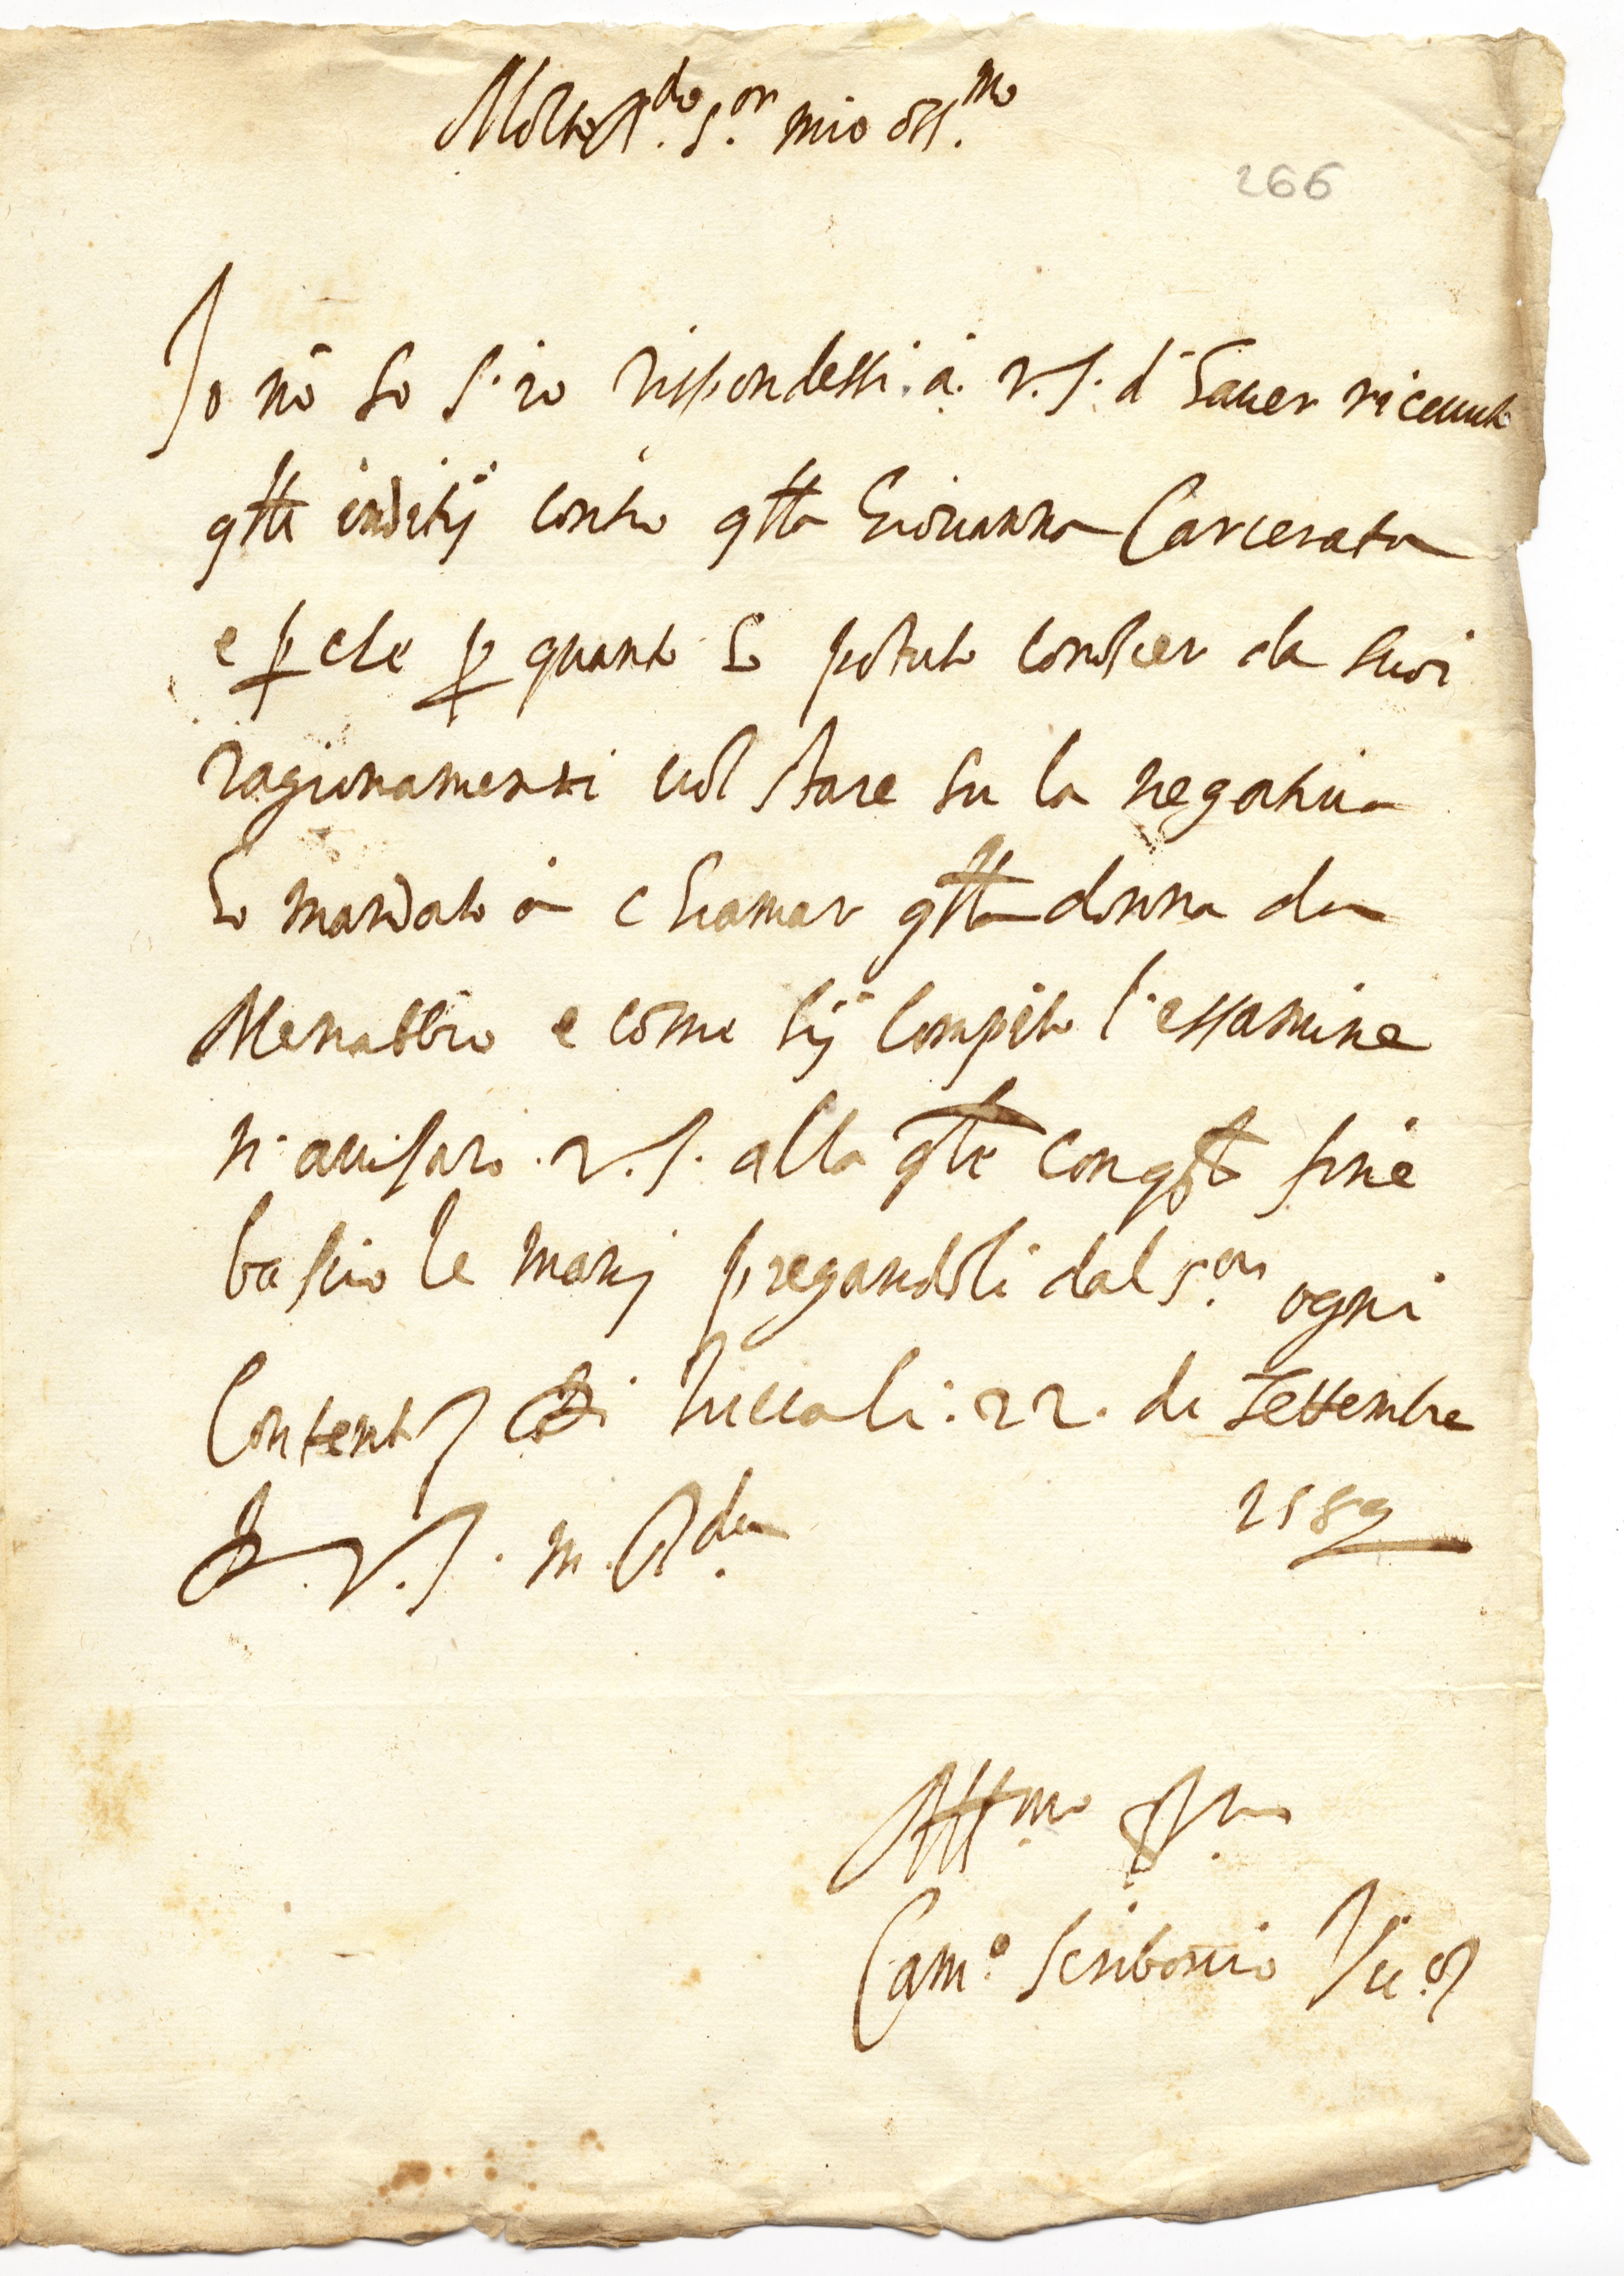 Molto R.do s.or mio oss.mo
266
Io nō so s'io rispondessi à V.S. d'haver ricevuto
q̃lli inditij contro q̃lla Giovanna Carcerata
e ꝑche ꝑ quanto ho potuto conoscer da suoi
ragionamenti vol stare su la negativa
ho mandato à chiamar q̃lla donna da
Menabbio e come sij compito l'essamine
n'avisarò V.S. alla q̃le con q̃sto fine
bascio le manj pregandoli dal s.or ogni
Contento di 22. di Settembre
1589
D. V.S. m. R.da
Aff.mo
Cam.o Scribonio Vic.o